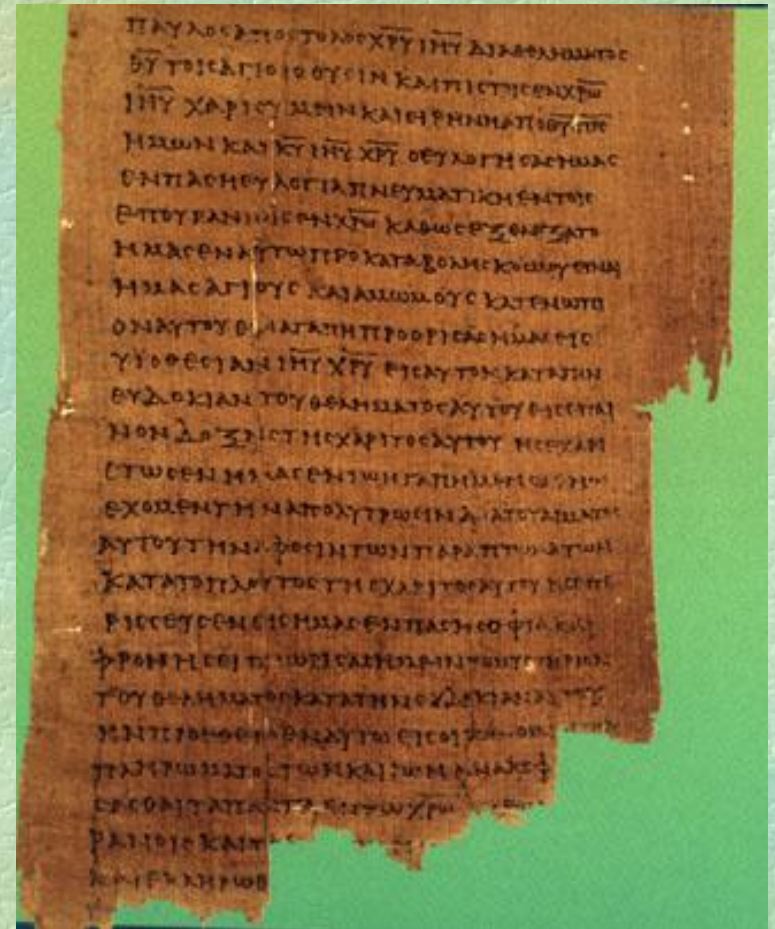 ΠΑΥΛΟΣ ΑΠΟΣΤΟΛΟΣ ΧΡΥ ΙΗΥ ΔΙΑ ΘΕΛΗΜΑΤΟΣ
ΘΥ ΤΟΙΣ ΑΓΙΟΙΣ ΟΥΣΙΝ ΚΑΙ ΠΙΣΤΟΙΣ ΕΝ ΧΡΩ
ΙΗΥ ΧΑΡΙΣ ΥΜΕΙΝ ΚΑΙ ΕΙΡΗΝΗ ΑΠΟ ΘΥ ΠΡΣ
ΗΜΩΝ ΚΑΙ ΚΥ ΙΗΥ ΧΡΥ Ο ΕΥΛΟΓΗΣΑΣ ΗΜΑΣ
ΕΝ ΠΑΣΗ ΕΥΛΟΓΙΑ ΠΝΕΥΜΑΤΙΚΗ ΕΝ ΤΟΙΣ
ΕΠΟΥΡΑΝΙΟΙΣ ΕΝ ΧΡΩ ΚΑΘΩΣ ΕΞΕΛΕΞΑΤΟ
ΗΜΑΣ ΕΝ ΑΥΤΩ ΠΡΟ ΚΑΤΑΒΟΛΗΣ ΚΟΣΜΟΥ ΕΙΝΑΙ
ΗΜΑΣ ΑΓΙΟΥΣ ΚΑΙ ΑΜΩΜΟΥΣ ΚΑΤΕΝΩΠΙ
ΟΝ ΑΥΤΟΥ ΕΝ ΑΓΑΠΗ ΠΡΟΟΡΙΣΑΣ ΗΜΑΣ ΕΙΣ
ΥΙΟΘΕΣΙΑΝ ΙΗΥ ΧΡΥ ΕΙΣ ΑΥΤΟΝ ΚΑΤΑ ΤΗΝ
ΕΥΔΟΚΙΑΝ ΤΟΥ ΘΕΛΗΜΑΤΟΣ ΑΥΤΟΥ ΕΙΣ ΕΠΑΙ
ΝΟΝ ΔΟΞΗΣ ΤΗΣ ΧΑΡΙΤΟΣ ΑΥΤΟΥ ΗΣ ΕΧΑΡΙ
ΕΝ ΤΩ ΗΓΑΠΗΜΕΝΩ
ΕΧΟΜΕΝ ΤΗΝ ΑΠΟΛΥΤΡΩΣΙΝ ΔΙΑ ΤΟΥ ΑΙΜΑΤΟΣ
ΑΥΤΟΥ ΤΗΝ ΑΦΕΣΙΝ ΤΩΝ ΠΑΡΑΠΤΩΜΑΤΩΝ
ΚΑΤΑ ΤΟ ΠΛΟΥΤΟΣ ΤΗΣ ΧΑΡΙΤΟΣ ΑΥΤΟΥ ΗΣ ΕΠΕ
ΡΙΣΣΕΥΣΕΝ ΕΙΣ ΗΜΑΣ ΕΝ ΠΑΣΗ ΣΟΦΙΑ ΚΑΙ
ΦΡΟΝΗΣΕΙ ΓΝΩΡΙΣΑΣ ΗΜΕΙΝ ΤΟ ΜΥΣΤΗΡΙΟΝ
ΤΟΥ ΘΕΛΗΜΑΤΟΣ ΚΑΤΑ ΤΗΝ ΕΥΔΟΚΙΑΝ ΑΥΤΟΥ
ΗΝ ΠΡΟΕΘΕΤΟ ΕΝ ΑΥΤΩ ΕΙΣ
ΠΛΗΡΩΜΑΤΟΣ ΤΩΝ ΚΑΙΡΩΝ ΑΝΑΚΕΦ
ΣΑΣΘΑΙ ΤΑ ΠΑΝΤΑ ΕΝ ΤΩ ΧΡΩ
ΡΑΝΟΙΣ ΚΑΙ Τ
ΚΑΙ ΕΚΛΗΡΩΘ